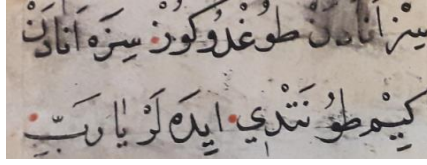 سِزْ اَنَادَنْ طُوغْدُوكُوزْ سِزَه اَنَادَنْ
كِيْمْ طُونَتْدِي اِيدَه لَرْ يَا رَبِّ